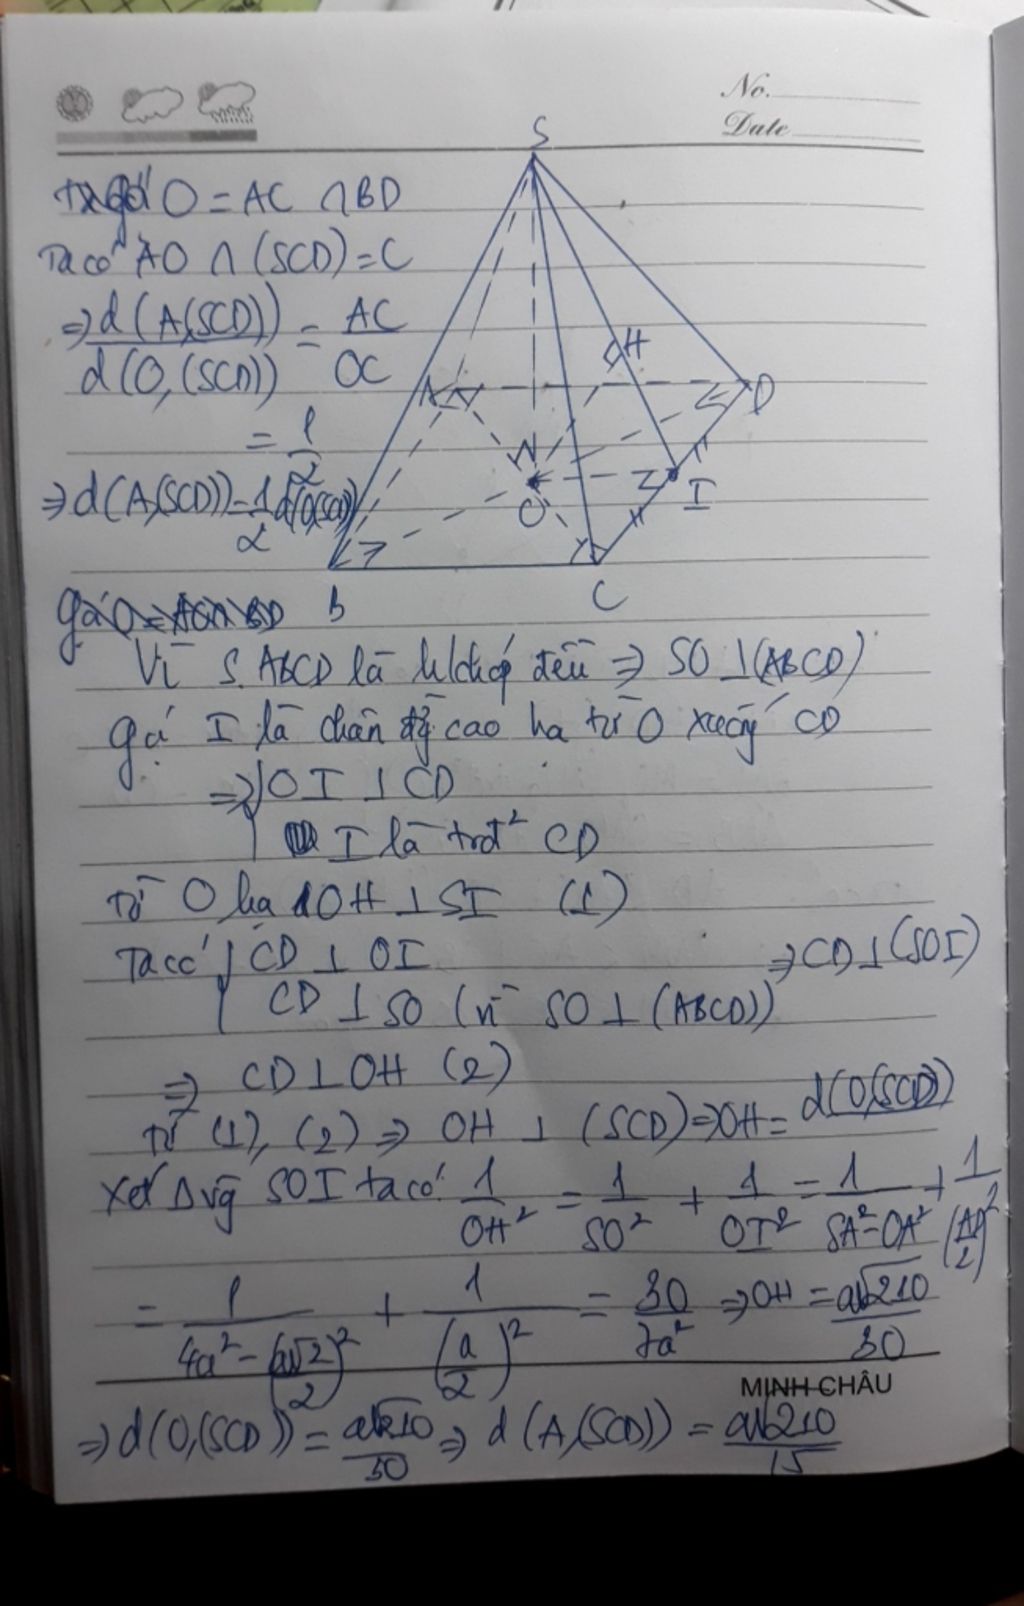 No.
Date
S
gọi O = AC ∩ BD
Ta có AO ∩ (SCD) = C
=> d(A,(SCD)) / d(O,(SCD)) = AC / OC
= 1/2
=> d(A,(SCD)) = 1/2 d(O,(SCD))
A
H
D
O
I
B
C
gọi O = AC ∩ BD
Vì S.ABCD là h/chóp đều => SO ⊥ (ABCD)
gọi I là chân đg cao hạ từ O xuống CD
=> { OI ⊥ CD
I là trđ² CD
Từ O hạ OH ⊥ SI (1)
Ta có { CD ⊥ OI
CD ⊥ SO (vì SO ⊥ (ABCD)) => CD ⊥ (SOI)
=> CD ⊥ OH (2)
Từ (1), (2) => OH ⊥ (SCD) => OH = d(O,(SCD))
Xét Δvg SOI ta có: 1/OH² = 1/SO² + 1/OI² = 1/(SA² - OA²) + 1/(AD/2)²
= 1/(4a² - (a√2/2)²) + 1/(a/2)² = 30/7a² => OH = a√210/30
MINH CHÂU
=> d(O,(SCD)) = a√210/30 => d(A,(SCD)) = a√210/15